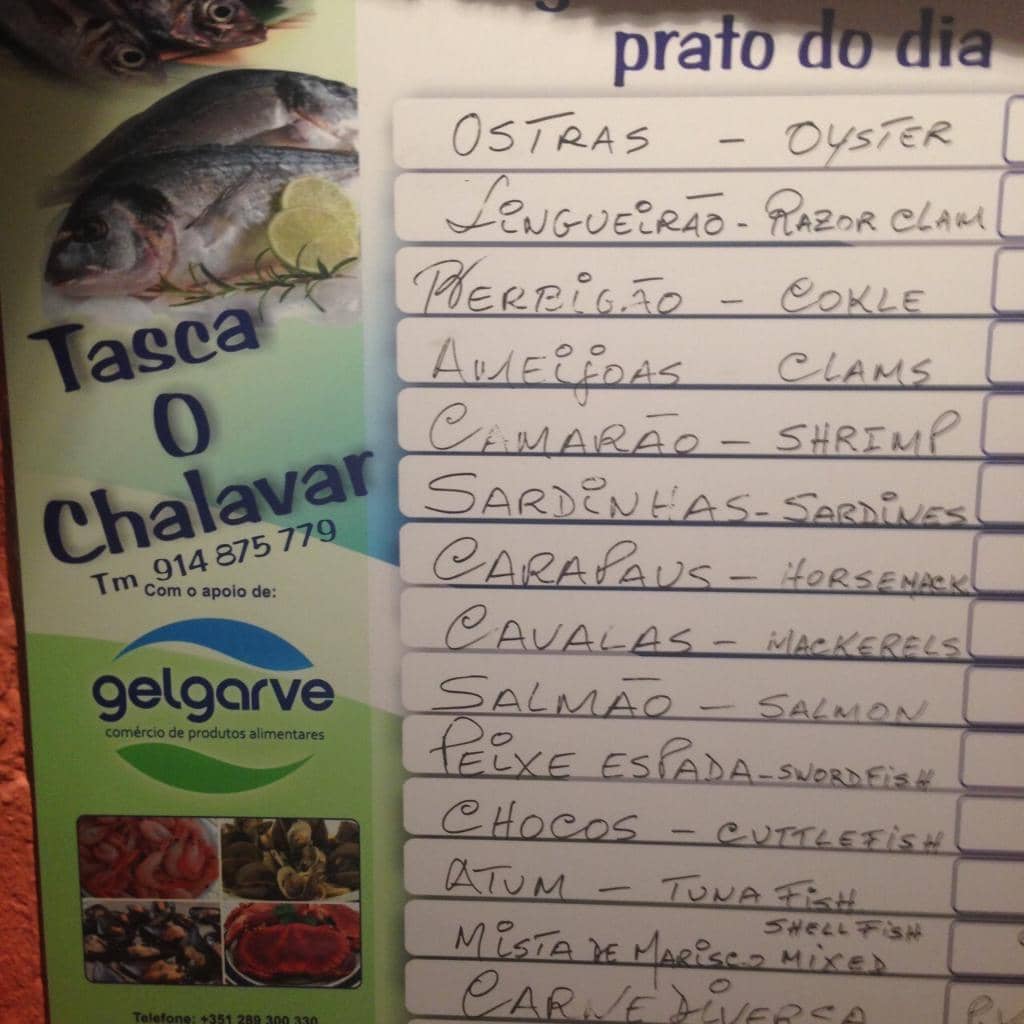 prato do dia
OSTRAS - OYSTER
LINGUEIRÃO - RAZOR CLAM
BERBIGÃO - COKLE
AMEIJOAS CLAMS
CAMARÃO - SHRIMP
SARDINHAS - SARDINES
CARAPAUS - HORSEMACK
CAVALAS - MACKERELS
SALMÃO - SALMON
PEIXE ESPADA - SWORDFISH
CHOCOS - CUTTLEFISH
ATUM - TUNA FISH
MISTA DE MARISCO SHELLFISH MIXED
CARNE DIVERSA
Tasca
O
Chalavar
Tm 914 875 779
Com o apoio de:
gelgarve
comércio de produtos alimentares
Telefone: +351 289 300 330